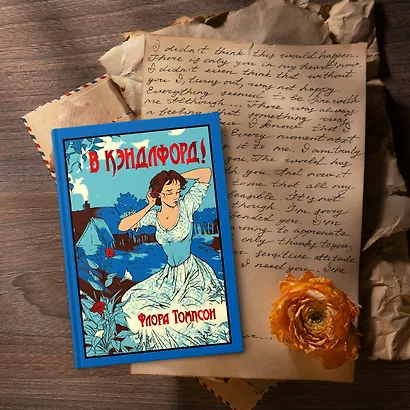 В КЭНДЛФОРД!
ФЛОРА ТОМПСОН
I didn't think this would happen.
There is only you in my heart now.
I didn't even think that without
you, I turn out, was not happy.
Everything seems to be fine with
me. Although... There was always
a feeling that something was
I know that I
Every moment next
it to me. I am truly
you. The world has
with you. And now it
to me that all my
feasible. It's not
though. I'm sorry
offended you. I'm
learning to appreciate
only thanks to you,
sensitive attitude
I need you... I'm